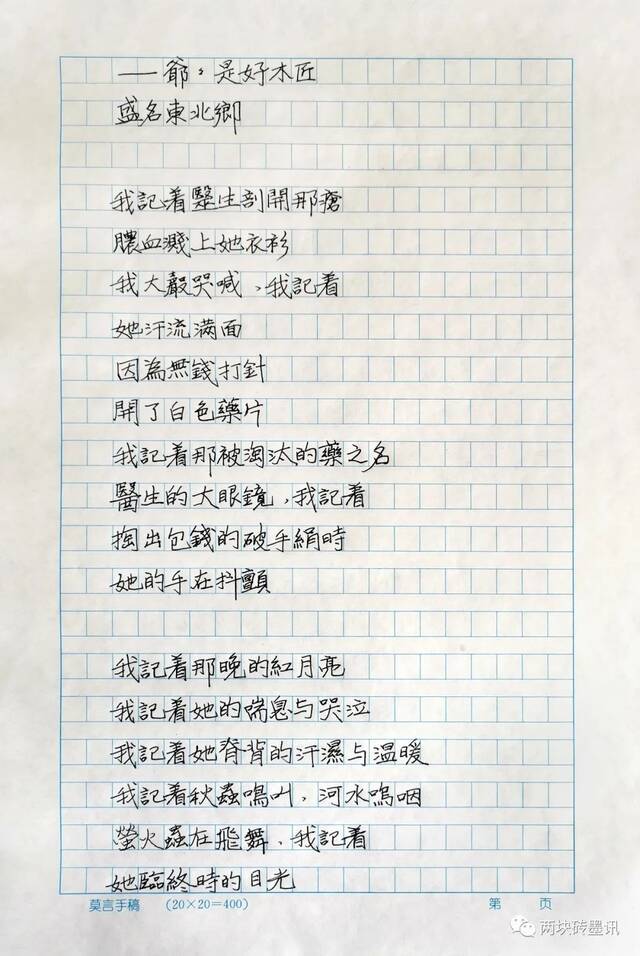 ——爺々是好木匠
盛名東北鄉
我記着毉生剖開那瘡
膿血濺上她衣衫
我大聲哭喊，我記着
她汗流满面
因為無錢打針
開了白色藥片
我記着那被淘汰的藥之名
醫生的大眼鏡，我記着
掏出包錢的破手絹時
她的手在抖顫
我記着那晚的紅月亮
我記着她的喘息与哭泣
我記着她脊背的汗濕与温暖
我記着秋蟲鳴叫，河水嗚咽
螢火蟲在飛舞，我記着
她臨終時的目光
莫言手稿 (20×20=400) 第 页
两块砖墨讯